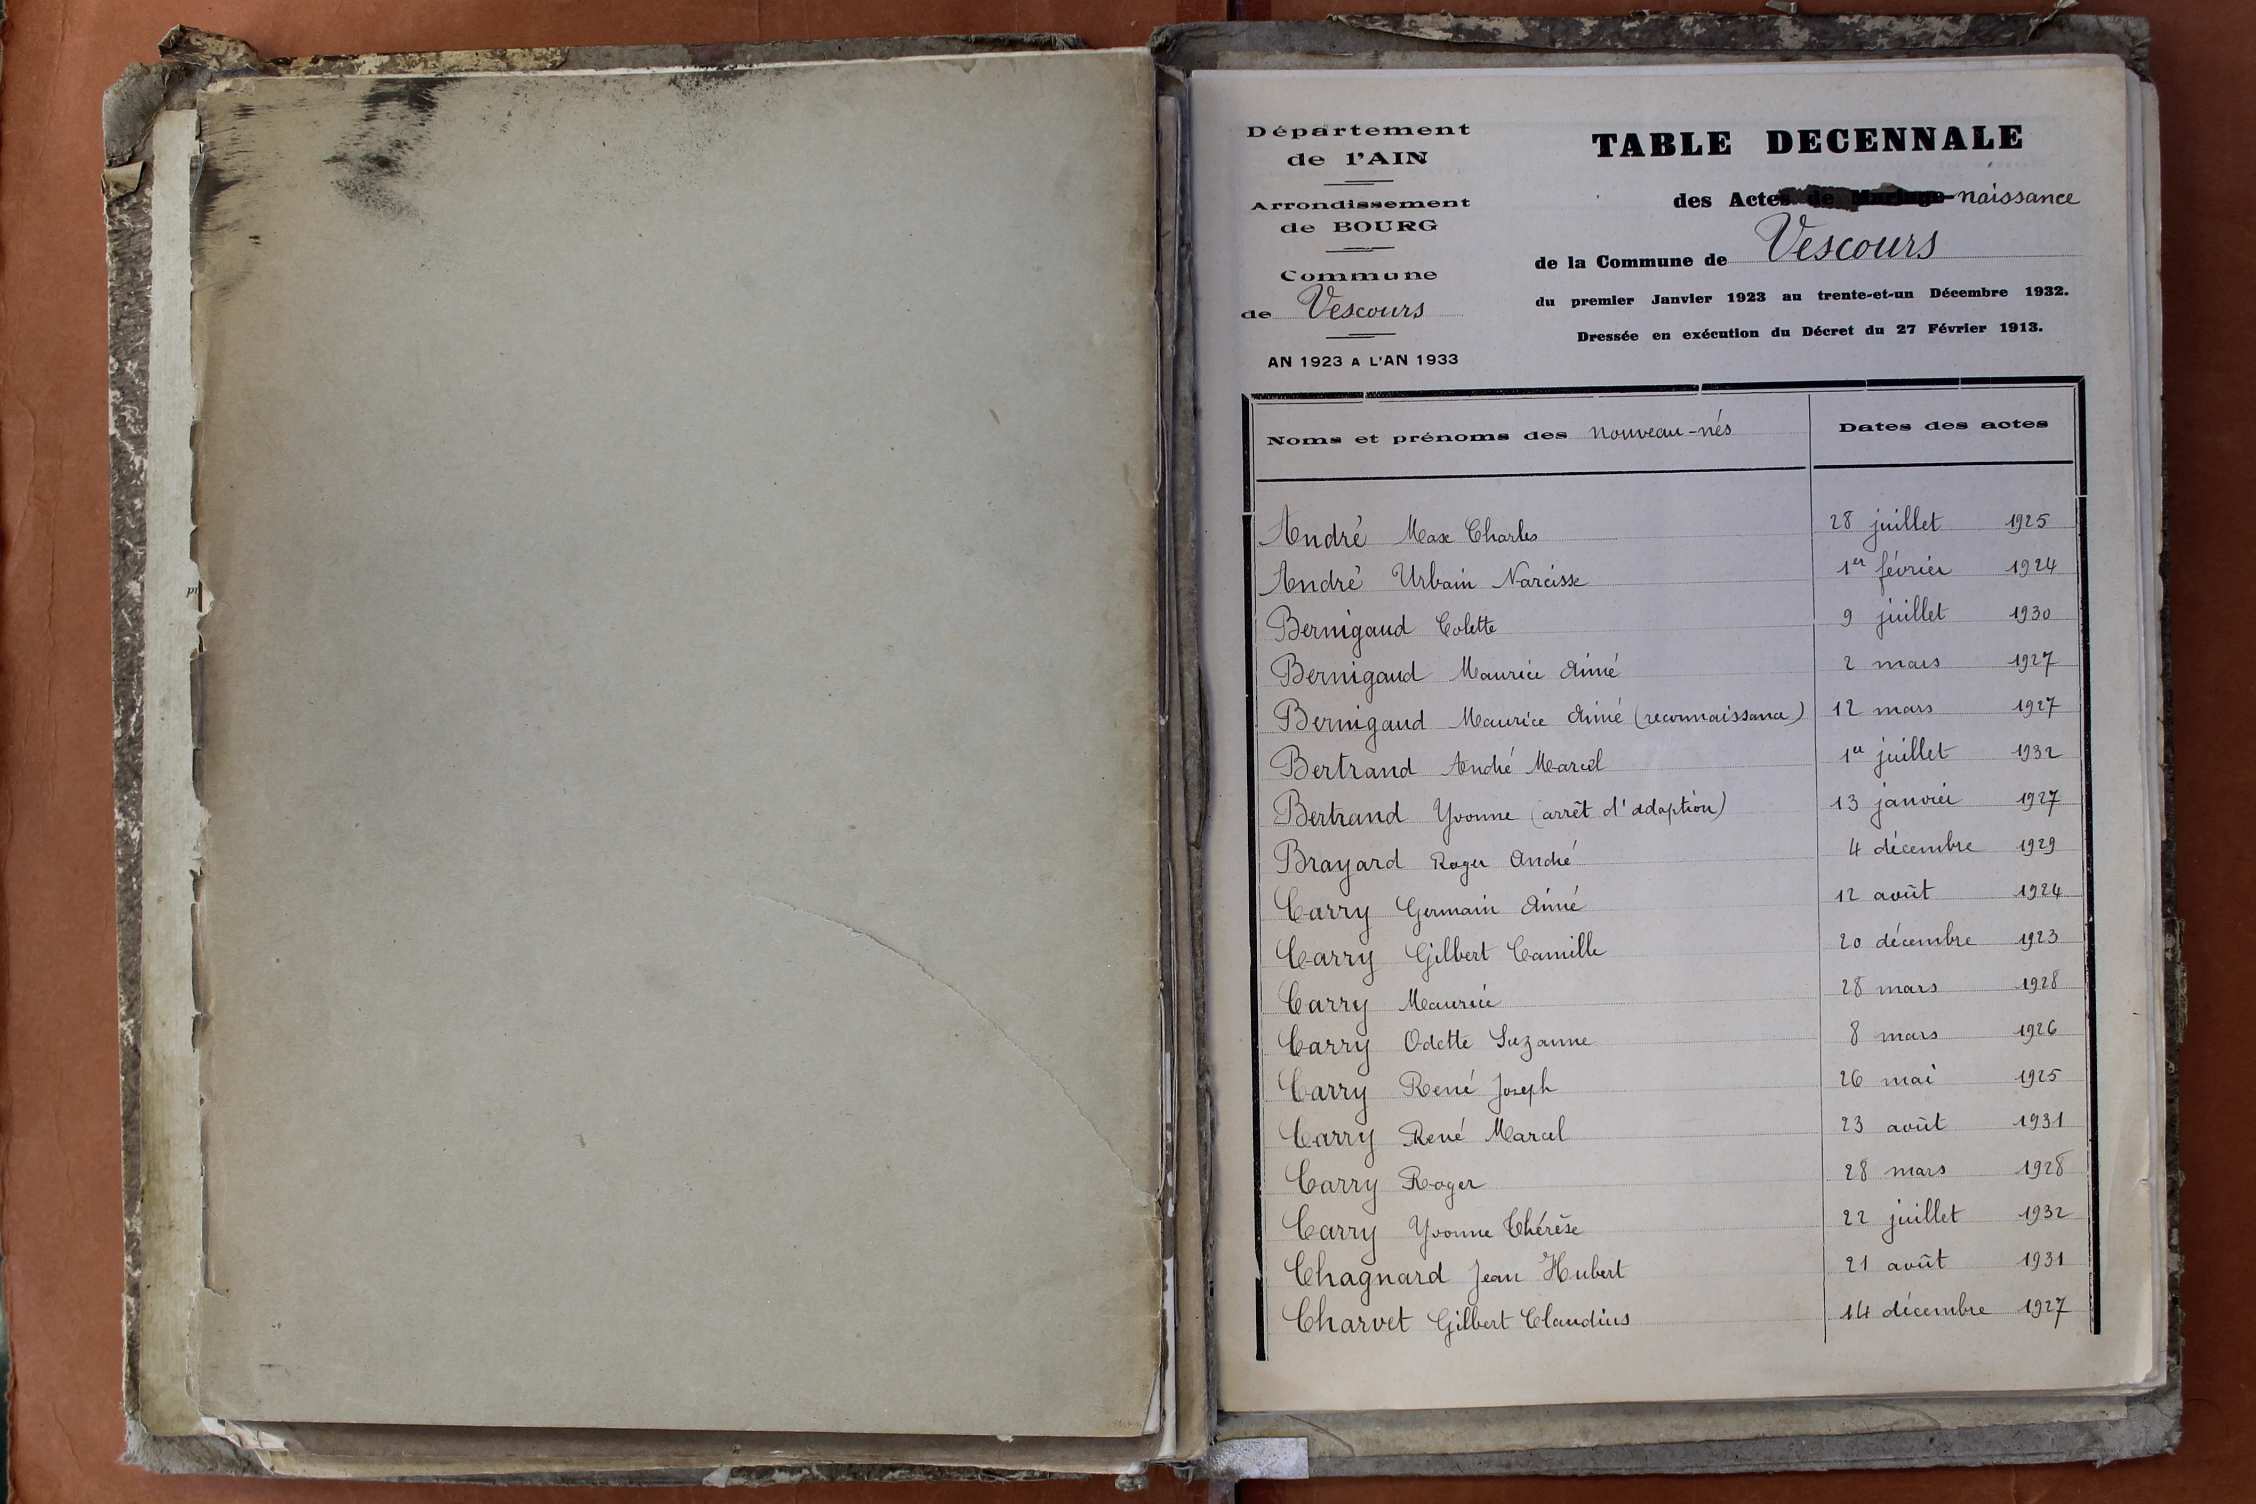 Département
de l'AIN
Arrondissement
de BOURG
Commune
de Vescours
AN 1923 A L'AN 1933
TABLE DECENNALE
des Actes de Mariage naissance
de la Commune de Vescours
du premier Janvier 1923 au trente-et-un Décembre 1932.
Dressée en exécution du Décret du 27 Février 1913.
Noms et prénoms des nouveau-nés Dates des actes
André Max Charles 28 juillet 1925
André Urbain Narcisse 1er février 1924
Bernigaud Colette 9 juillet 1930
Bernigaud Maurice Aimé 2 mars 1927
Bernigaud Maurice Aimé (reconnaissance) 12 mars 1927
Bertrand André Marcel 1er juillet 1932
Bertrand Yvonne (arrêt d'adoption) 13 janvier 1927
Brayard Roger André 4 décembre 1929
Carry Germain Aimé 12 août 1924
Carry Gilbert Camille 20 décembre 1923
Carry Maurice 28 mars 1928
Carry Odette Suzanne 8 mars 1926
Carry René Joseph 26 mai 1925
Carry René Marcel 23 août 1931
Carry Roger 28 mars 1928
Carry Yvonne Thérèse 22 juillet 1932
Chagnard Jean Hubert 21 août 1931
Charvet Gilbert Claudius 14 décembre 1927